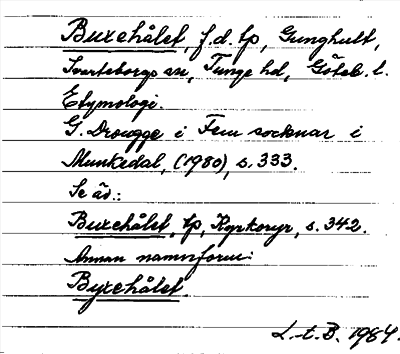 Buxehålet, f.d. tp, Gunghult,
Svarteborgs sn, Tunge hd, Göteb. l.
Etymologi.
G. Drougge i Fem socknar i
Munkedal, (1980), s. 333.
Se äv.:
Buxehålet, tp, Kyrkoryr, s. 342.
Annan namnform:
Byxehålet
L.t.B. 1984.